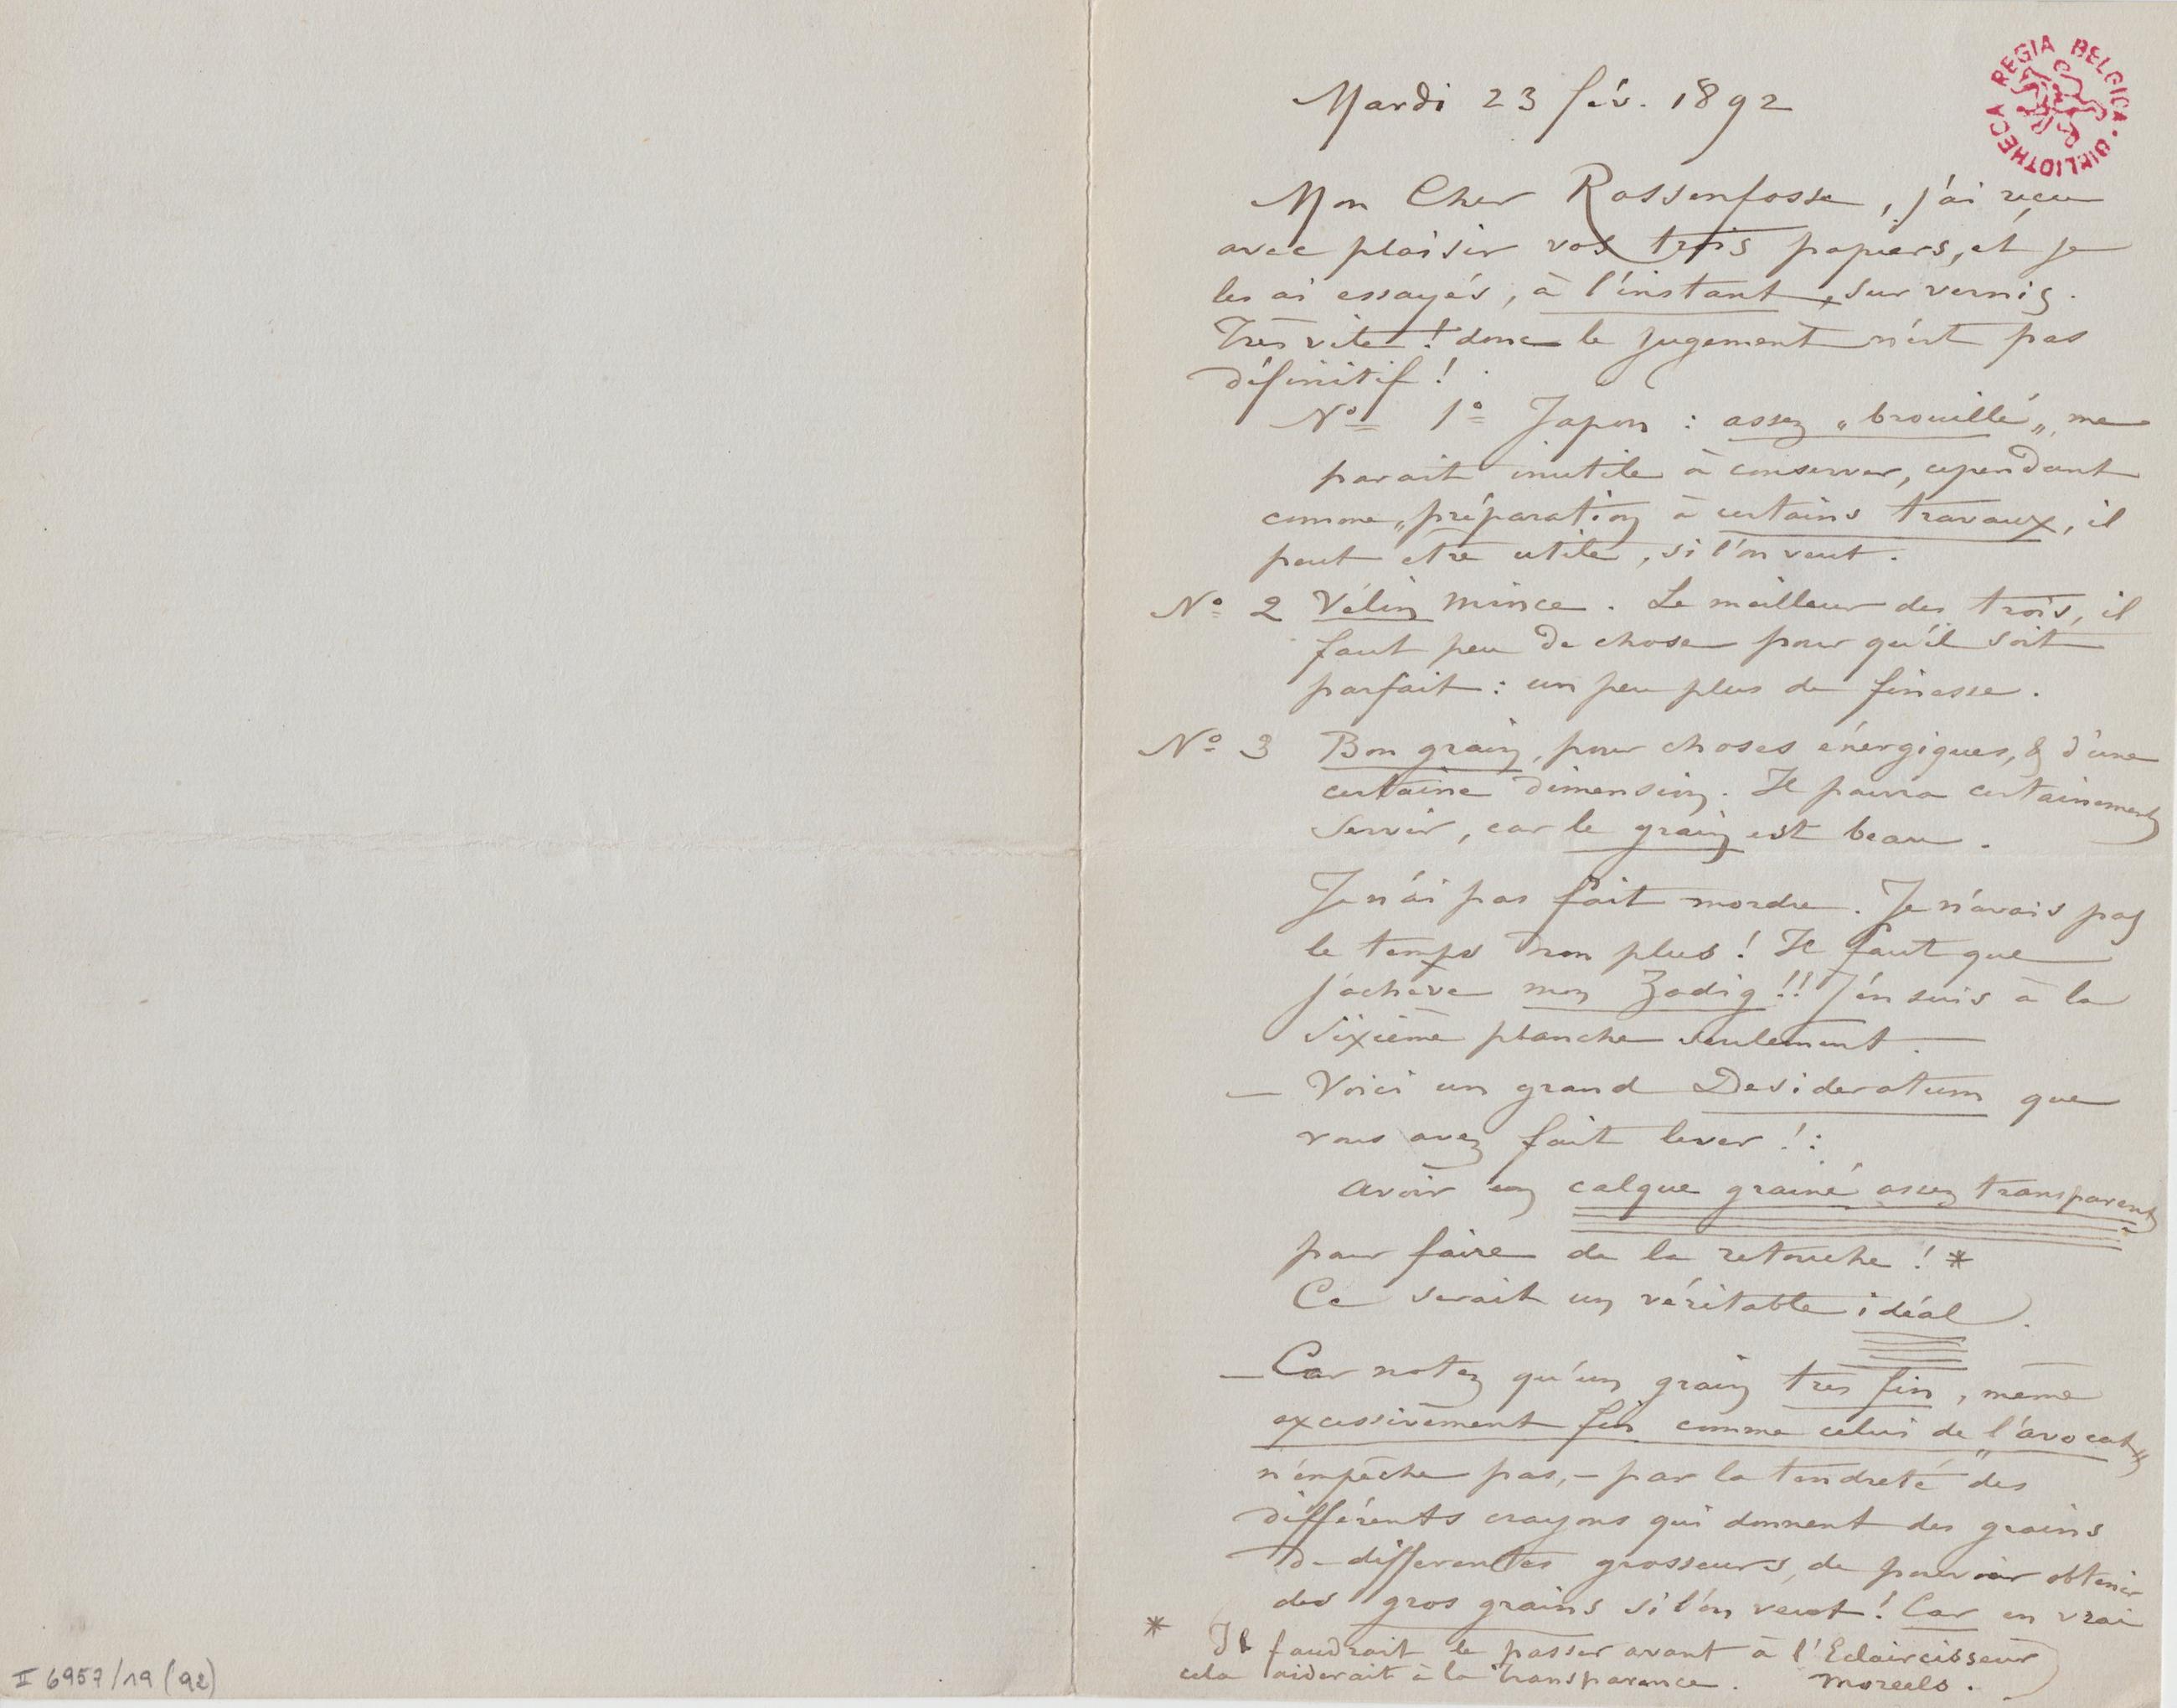 Mardi 23 fév. 1892
BIBLIOTHECA REGIA BELGICA
Mon Cher Rassenfosse, j'ai reçu
avec plaisir vos trois papiers, et je
les ai essayés, à l'instant, sur vernis.
Très vite ! donc le jugement n'est pas
définitif !
Nº 1º Japon : assez „brouillé„ me
parait inutile à conserver, cependant
comme „préparation à certains travaux, il
peut etre utile, si l'on veut.
Nº 2 Vélin mince. Le meilleur des trois, il
faut peu de chose pour qu'il soit
parfait : un peu plus de finesse.
Nº 3 Bon grain, pour choses énergiques, & d'une
certaine dimension. Il pourra certainement
servir, car le grain est beau.
Je n'ai pas fait mordre. Je n'avais pas
le temps non plus ! Il faut que
j'achève mon Zadig !! J'en suis à la
sixième planche seulement. —
— Voici un grand Desideratum que
vous avez fait lever ! :
avoir un calque grainé assez transparent
pour faire de la retouche ! *
Ce serait un véritable idéal.
— Car notez qu'un grain très fin, même
excessivement fin comme celui de „l'avocat„
n'empêche pas, – par la tendreté des
différents crayons qui donnent des grains
de differentes grosseurs, de pouvoir obtenir
des gros grains si l'on veut ! Car en vrai
* Il faudrait le passer avant à l'Eclaircisseur
cela aiderait à la transparence. Moreels.
II 6957/19 (92)